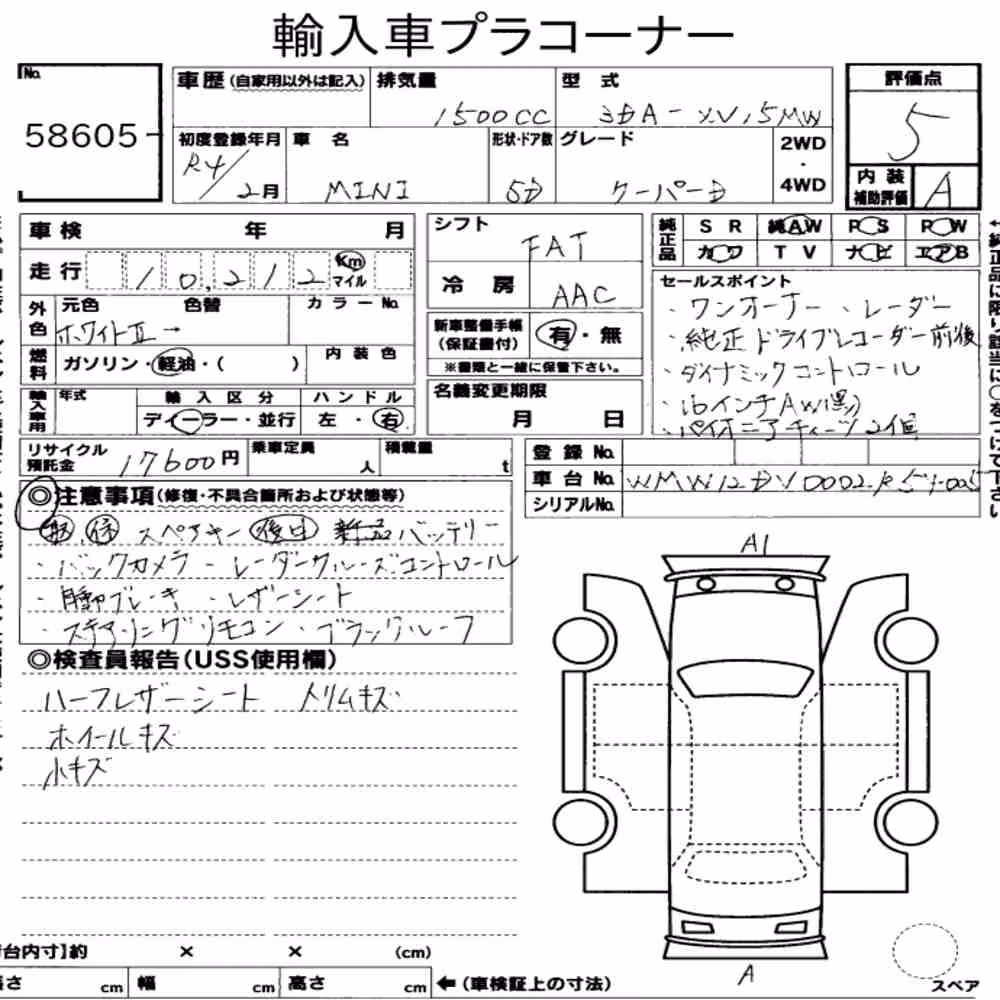 輸入車プラコーナー
No. 58605
車歴(自家用以外は記入) 排気量 1500CC 型式 3DA-XV15MW
評価点 5
初度登録年月 R4/2月 車名 MINI 形状・ドア数 5D グレード クーパーD 2WD・4WD
内装補助評価 A
車検 年 月
走行 10,212 Km マイル
外色 元色 ホワイトII → 色替 カラーNo.
燃料 ガソリン・軽油・( ) 内装色
輸入車用 年式 輸入区分 ディーラー・並行 ハンドル 左・右
シフト FAT
冷房 AAC
新車整備手帳(保証書付) 有・無
※書類と一緒に保管下さい。
名義変更期限 月 日
純正品 SR 純AW PS PW
カワ TV ナビ エアB
セールスポイント
・ワンオーナー ・レーダー
・純正ドライブレコーダー前後
・ダイナミックコントロール
・16インチAW(黒)
・パイオニアチューツ2個
リサイクル預託金 17600円 乗車定員 人 積載量 t
登録No.
車台No.
シリアルNo.
◎注意事項(修復・不具合箇所および状態等)
スペアキー 後日 新品バッテリー
・バックカメラ ・レーダークルーズコントロール
・自動ブレーキ ・レザーシート
・ステアリングリモコン ・ブラックルーフ
◎検査員報告(USS使用欄)
ハーフレザーシート トリムキズ
ホイールキズ
小キズ
A1
A
スペア
台内寸]約 × × (cm)
さ cm 幅 cm 高さ cm ←(車検証上の寸法)